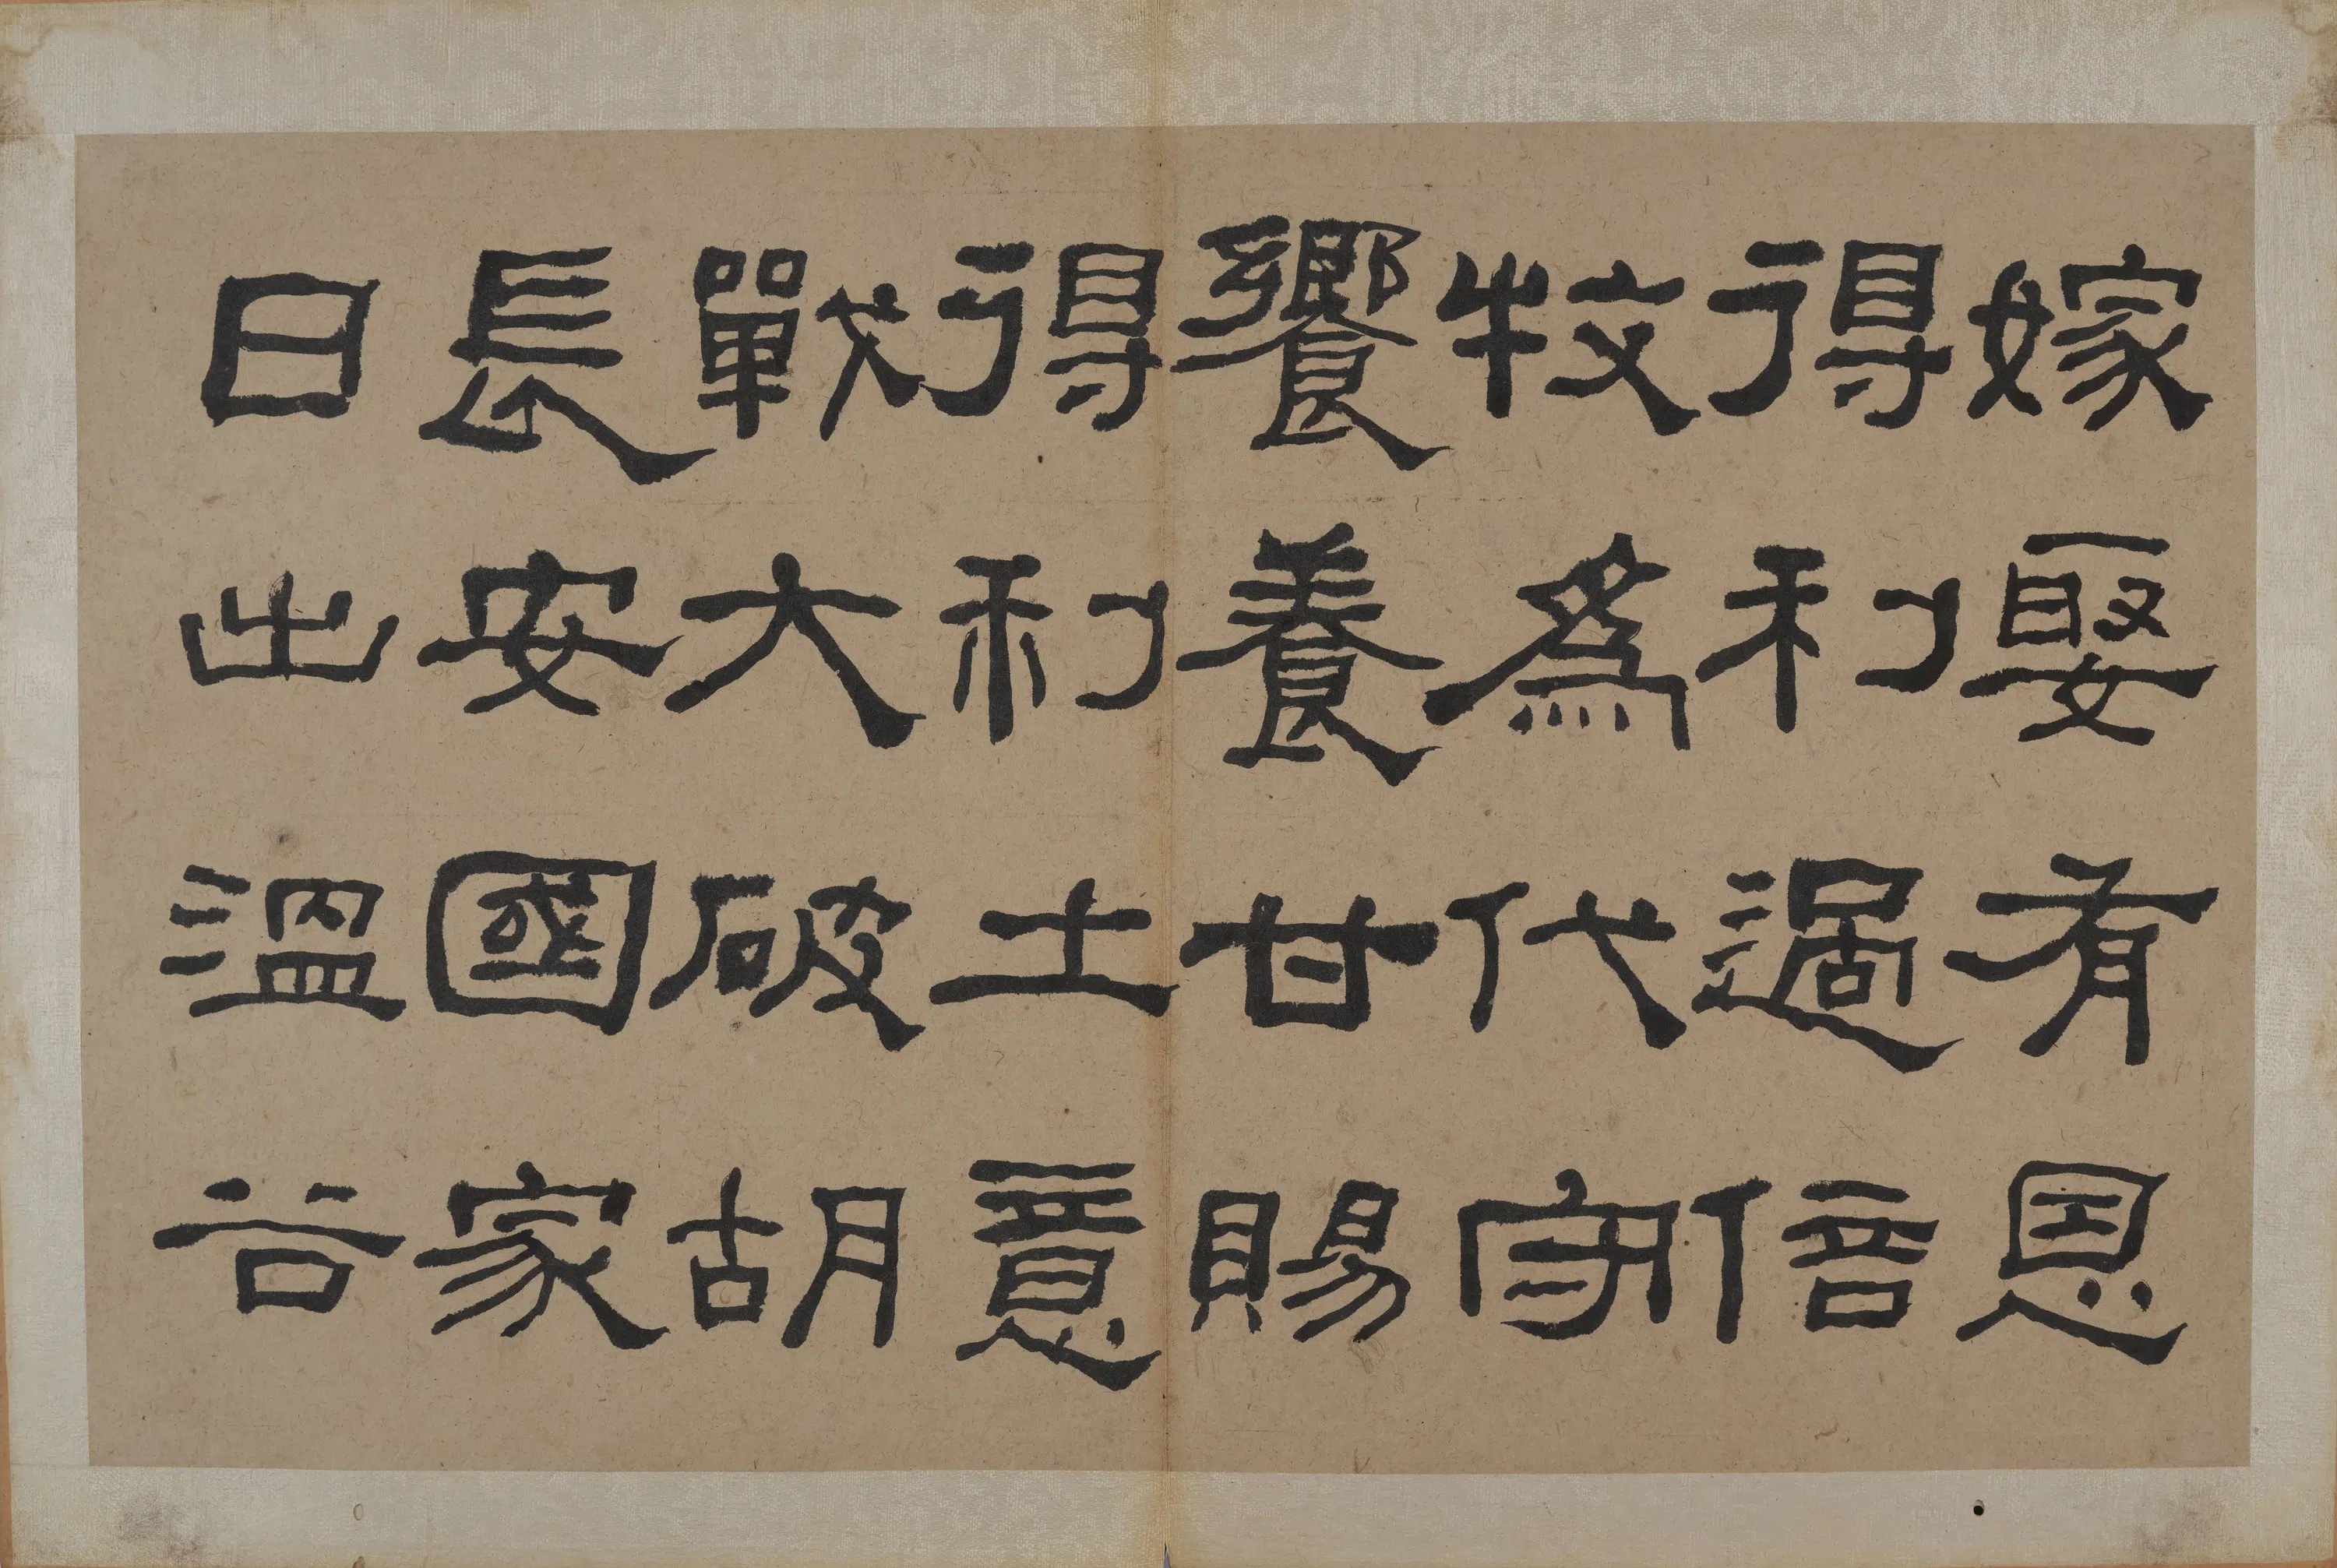 嫁娶有恩
得利過倍
牧爲代守
饗養甘賜
得利土意
戰大破胡
長安國家
日出溫谷